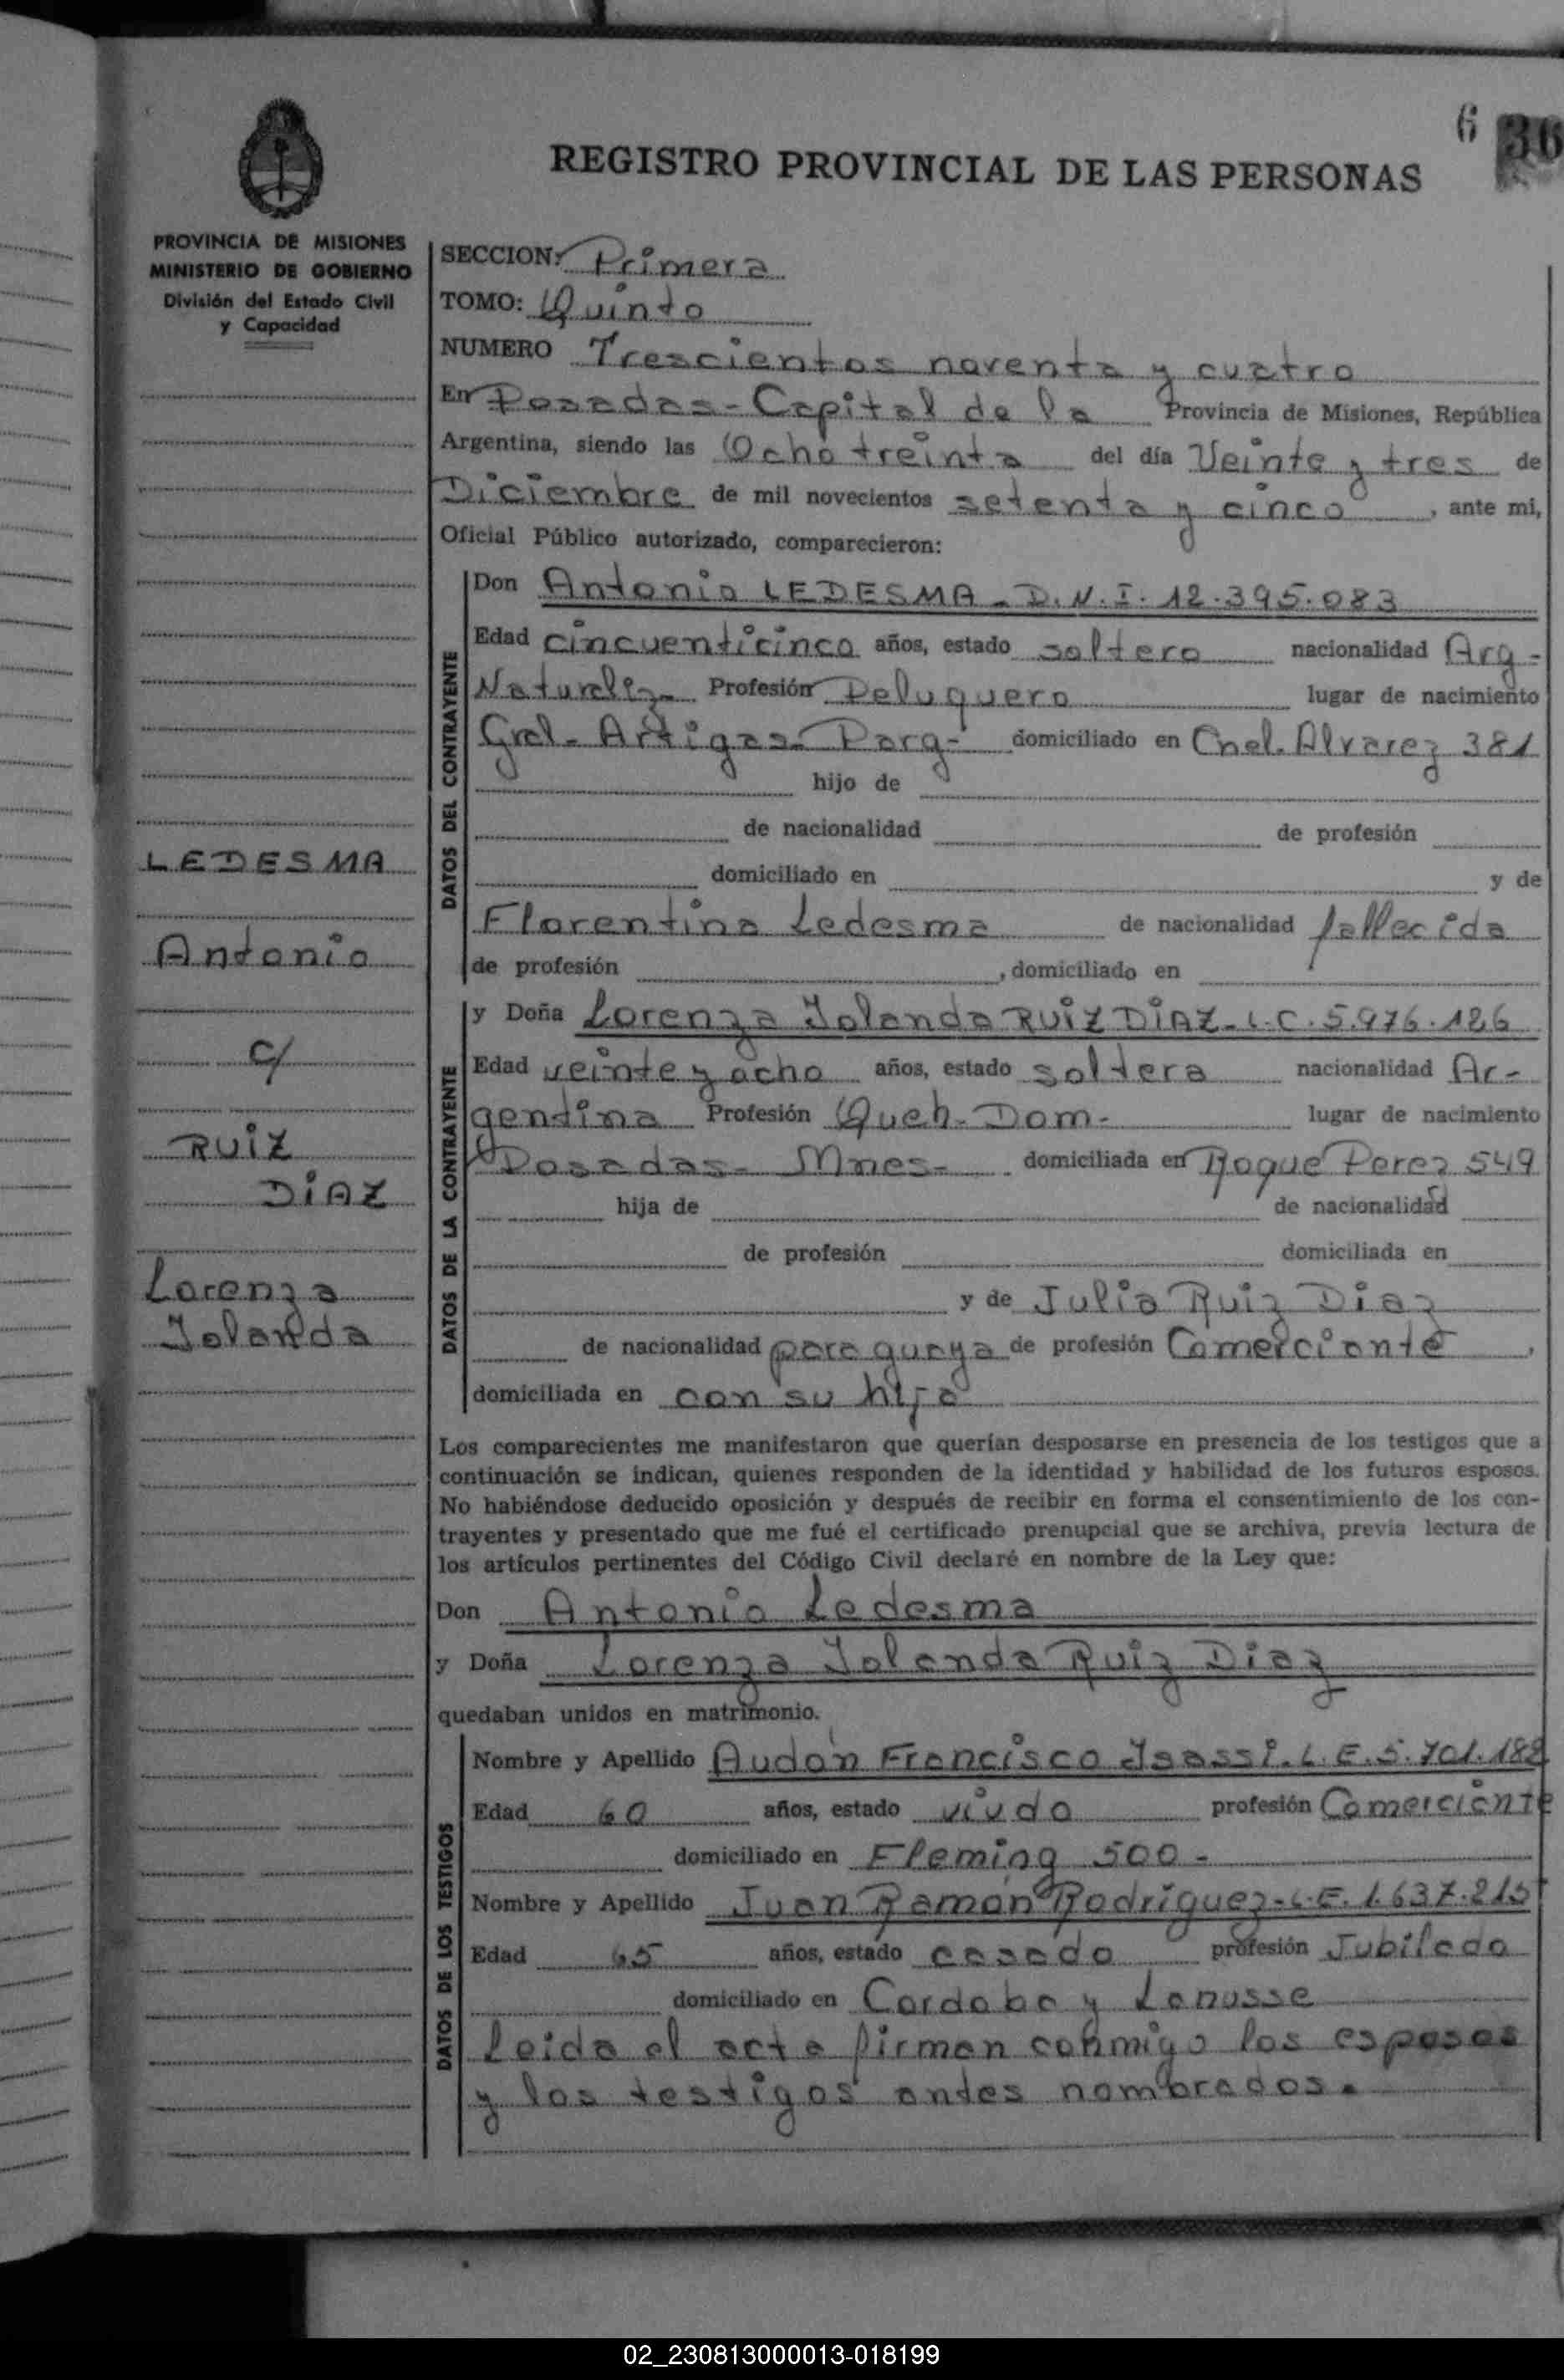 6 36
REGISTRO PROVINCIAL DE LAS PERSONAS
PROVINCIA DE MISIONES
MINISTERIO DE GOBIERNO
División del Estado Civil
y Capacidad
LEDESMA
Antonio
c/
RUIZ
DIAZ
Lorenza
Iolanda
SECCION: Primera
TOMO: Quinto
NUMERO Trescientos noventa y cuatro
En Posadas - Capital de la Provincia de Misiones, República
Argentina, siendo las Ocho treinta del día Veinte y tres de
Diciembre de mil novecientos setenta y cinco, ante mi,
Oficial Público autorizado, comparecieron:
DATOS DEL CONTRAYENTE
Don Antonio LEDESMA - D.N.I. 12.395.083
Edad cincuenticinco años, estado soltero nacionalidad Arg-
Naturaliz- Profesión Peluquero lugar de nacimiento
Gral- Artigas- Parg- domiciliado en Cnel. Alvarez 381
hijo de
de nacionalidad de profesión
domiciliado en y de
Florentina Ledesma de nacionalidad fallecida
de profesión , domiciliado en
DATOS DE LA CONTRAYENTE
y Doña Lorenza Iolanda RUIZ DIAZ - L.C. 5.976.126
Edad veinte y ocho años, estado soltera nacionalidad Ar-
gentina Profesión Queh- Dom- lugar de nacimiento
Posadas- Mnes- domiciliada en Roque Perez 549
hija de de nacionalidad
de profesión domiciliada en
y de Julia Ruiz Diaz
de nacionalidad paraguaya de profesión Comerciante ,
domiciliada en con su hija
Los comparecientes me manifestaron que querían desposarse en presencia de los testigos que a
continuación se indican, quienes responden de la identidad y habilidad de los futuros esposos.
No habiéndose deducido oposición y después de recibir en forma el consentimiento de los con-
trayentes y presentado que me fué el certificado prenupcial que se archiva, previa lectura de
los artículos pertinentes del Código Civil declaré en nombre de la Ley que:
Don Antonio Ledesma
y Doña Lorenza Iolanda Ruiz Diaz
quedaban unidos en matrimonio.
DATOS DE LOS TESTIGOS
Nombre y Apellido Audón Francisco Isassi. L.E. 5.701.188
Edad 60 años, estado viudo profesión Comerciante
domiciliado en Fleming 500 -
Nombre y Apellido Juan Ramón Rodriguez - L.E. 1.637.215
Edad 65 años, estado casado profesión Jubilado
domiciliado en Cordoba y Lanusse
Leida el acta firman conmigo los esposos
y los testigos antes nombrados.
02_230813000013-018199